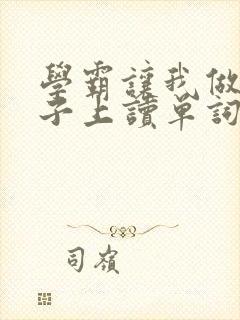 學霸讓我做
子上讀單詞
司嶺